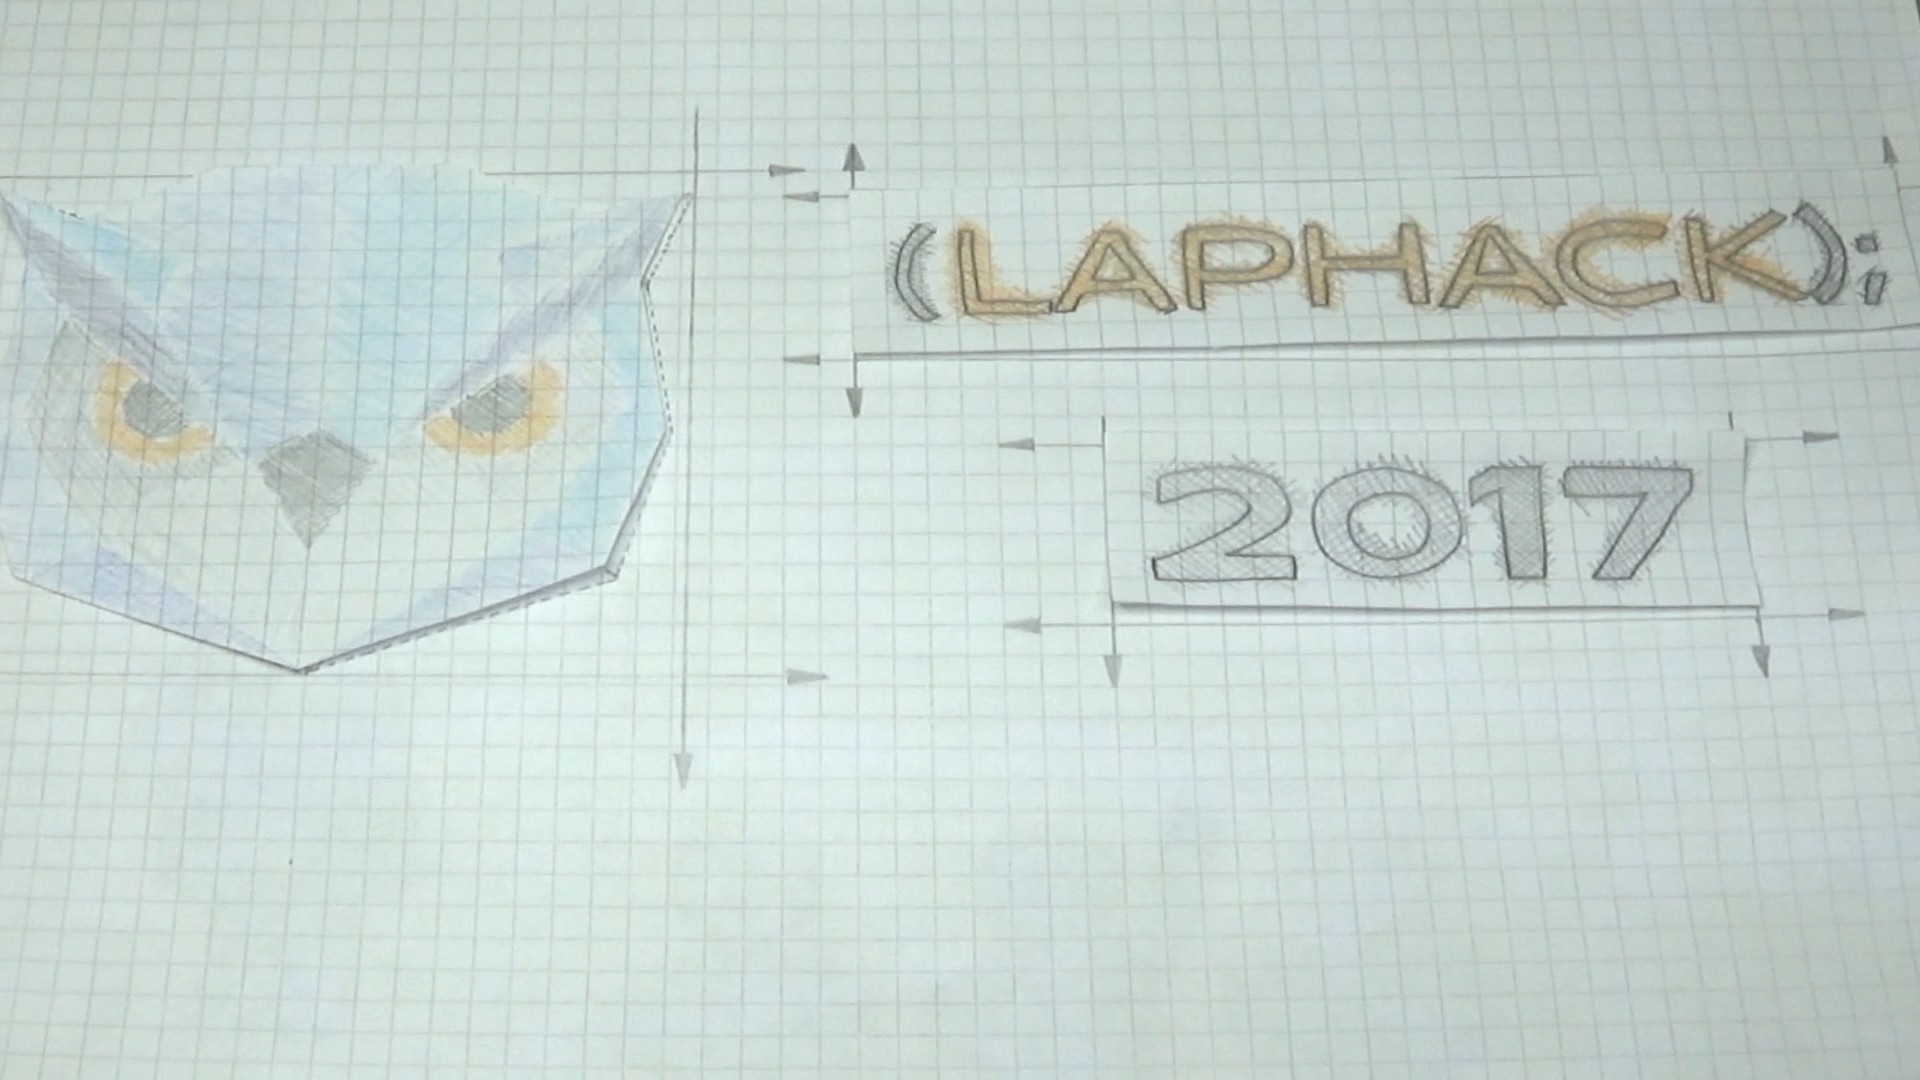 (LAPHACK);
2017